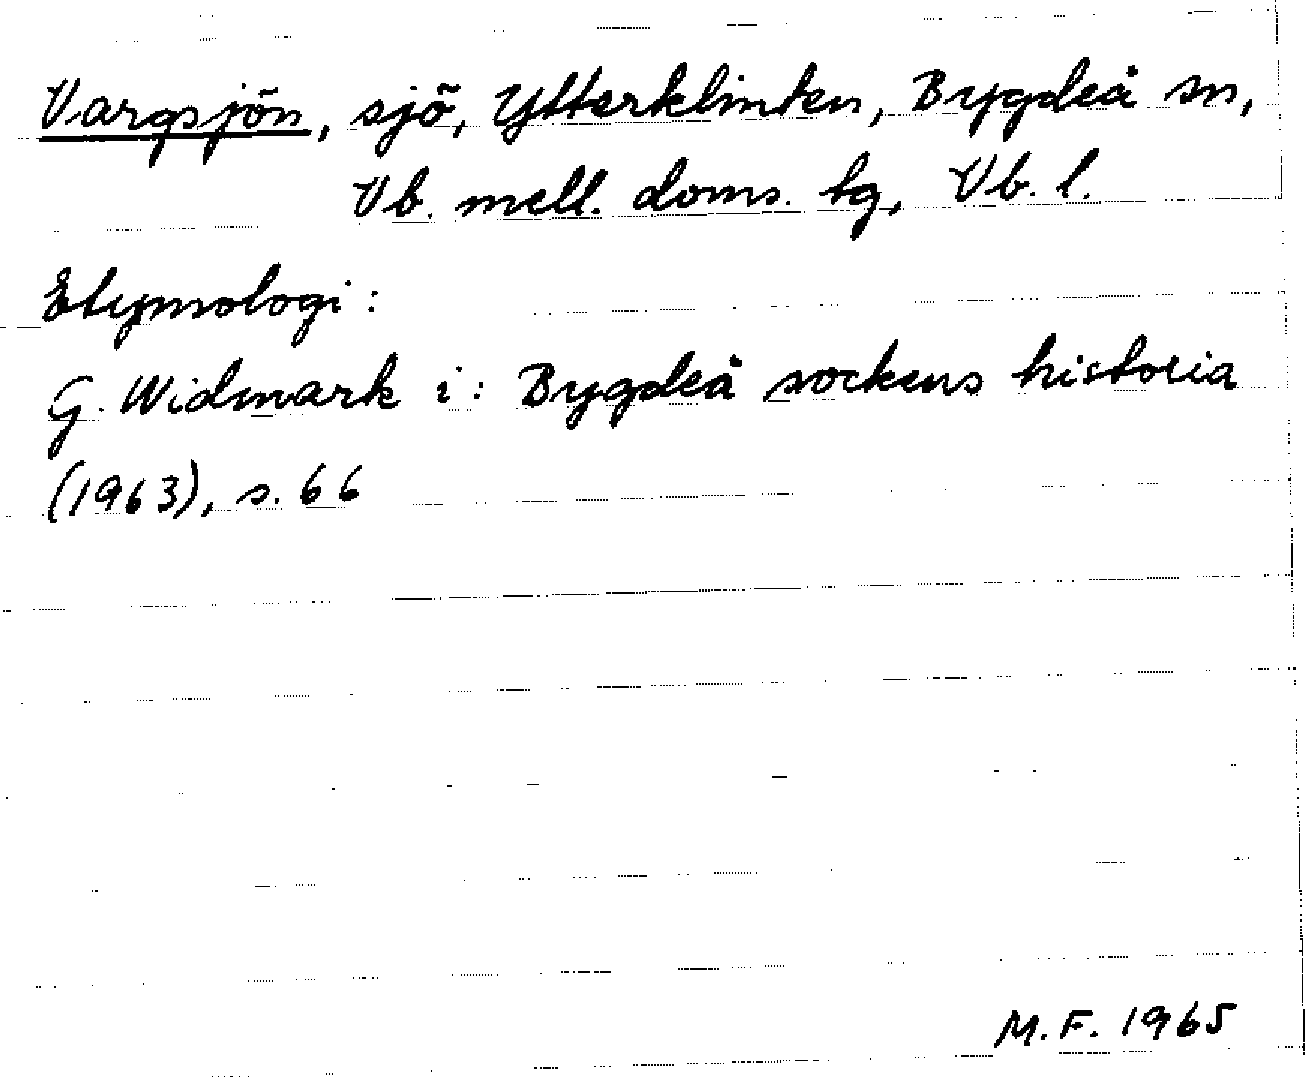 Vargsjön, sjö, Ytterklinten, Bygdeå sn,
Vb. mell. doms. tg, Vb. l.
Etymologi:
G. Widmark i: Bygdeå sockens historia
(1963), s. 66
M.F. 1965